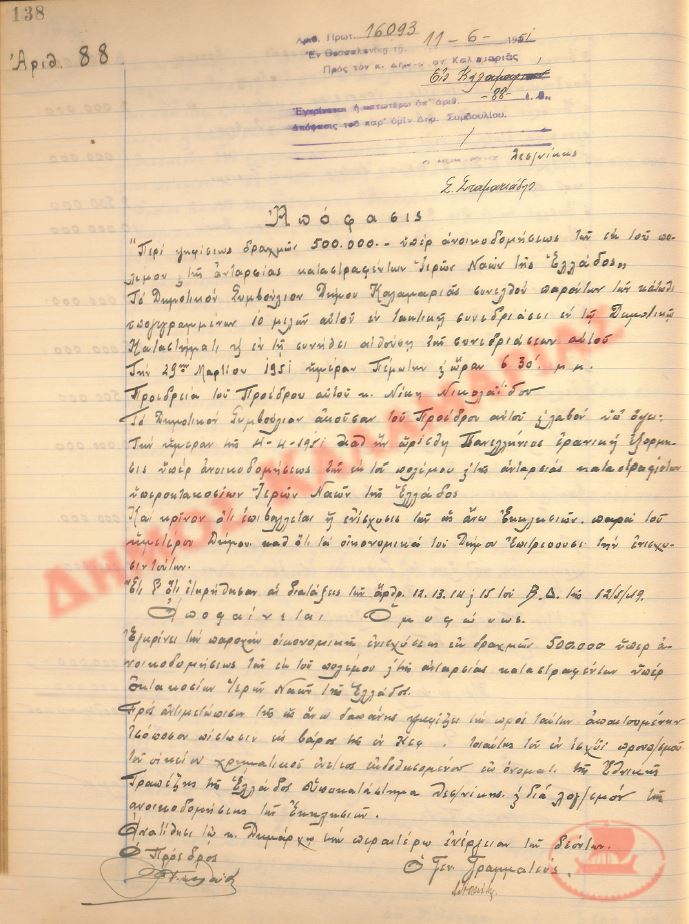 138
Ἀριθ. 88
Ἀριθ. Πρωτ. 16093
Ἐν Θεσσαλονίκῃ τῇ 11-6-1951
Πρὸς τὸν κ. Δήμαρχον Καλαμαριᾶς
Εἰς Καλαμαριὰν
Ἐγκρίνεται ἡ κατωτέρω ὑπ' ἀριθ. -88-
ἀπόφασις τοῦ παρ' ὑμῖν Δημ. Συμβουλίου.
Ἀπόφασις
"Περὶ ψηφίσεως δραχμῶν 500.000.- ὑπὲρ ἀνοικοδομήσεως τῶν ἐκ τοῦ πο-
λέμου καὶ τῆς ἀνταρσίας καταστραφέντων Ἱερῶν Ναῶν τῆς Ἑλλάδος"
Τὸ Δημοτικὸν Συμβούλιον Δήμου Καλαμαριᾶς συνελθὸν παρόντων τῶν κάτωθι
ὑπογεγραμμένων 10 μελῶν αὐτοῦ ἐν τακτικῇ συνεδριάσει ἐν τῷ Δημοτικῷ
Καταστήματι καὶ ἐν τῇ συνήθει αἰθούσῃ τῶν συνεδριάσεων αὐτοῦ
Τὴν 29ην Μαρτίου 1951 ἡμέραν Πέμπτην καὶ ὥραν 6 30' μ.μ.
Προεδρείᾳ τοῦ Προέδρου αὐτοῦ κ. Νίκη Νικολαΐδου
Τὸ Δημοτικὸν Συμβούλιον ἀκοῦσαν τοῦ Προέδρου αὐτοῦ καὶ λαβὸν ὑπ' ὄψει:
Τὴν ἡμέραν τῆς 4-4-1951 καθ' ἣν ὡρίσθη Πανελλήνιος ἐρανικὴ ἐξόρμη-
σις ὑπὲρ ἀνοικοδομήσεως τῶν ἐκ τοῦ πολέμου καὶ τῆς ἀνταρσίας καταστραφέντων
ὑπεροκτακοσίων Ἱερῶν Ναῶν τῆς Ἑλλάδος
Καὶ κρῖνον ὅτι ἐπιβάλλεται ἡ ἐνίσχυσις τῶν ὡς ἄνω Ἐκκλησιῶν παρὰ τοῦ
ἡμετέρου Δήμου καθ' ὅτι τὰ οἰκονομικὰ τοῦ Δήμου ἐπιτρέπουσι τὴν ἐνίσχυ-
σιν ταύτην.
Ἔτι δ' ὅτι ἐτηρήθησαν αἱ διατάξεις τῶν ἄρθρ. 12.13.14 καὶ 15 τοῦ Β.Δ. τῆς 12/5/49.
Ἀποφαίνεται Ὁμοφώνως.
Ἐγκρίνει τὴν παροχὴν οἰκονομικῆς ἐνισχύσεως ἐκ δραχμῶν 500.000 ὑπὲρ ἀ-
νοικοδομήσεως τῶν ἐκ τοῦ πολέμου καὶ τῆς ἀνταρσίας καταστραφέντων ὑπὲρ
Ὀκτακοσίων Ἱερῶν Ναῶν τῆς Ἑλλάδος.
Πρὸς ἀντιμετώπισιν τῆς ὡς ἄνω δαπάνης ψηφίζει τὴν πρὸς τοῦτον ἀπαιτουμένην
ἰσόποσον πίστωσιν εἰς βάρος τῆς ἐν Κεφ. τοιαύτης τοῦ ἐν ἰσχύϊ προϋπ/σμοῦ
τοῦ οἰκείου χρηματικοῦ ἐν/τος ἐκδοθησομένου ἐπ' ὀνόματι τῆς Ἐθνικῆς
Τραπέζης τῆς Ἑλλάδος Ὑποκατάστημα Θεσ/νίκης καὶ διὰ λογ/σμὸν τῆς
ἀνοικοδομήσεως τῶν Ἐκκλησιῶν.
Ἀνατίθησι τῷ κ. Δημάρχῳ τὴν περαιτέρω ἐνέργειαν τῶν δεόντων.
Ὁ Πρόεδρος
Ὁ Γεν. Γραμματεύς.